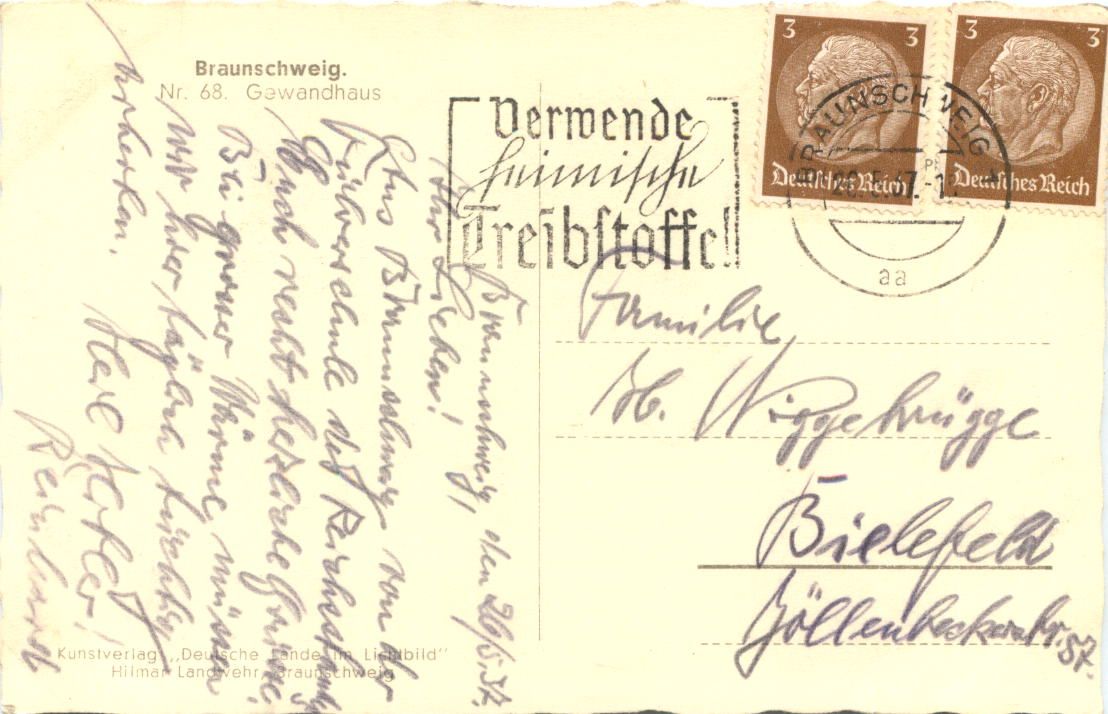 Braunschweig.
Nr. 68. Gewandhaus
Verwende
heimische
Treibstoffe!
3 3
Deutsches Reich
3 3
Deutsches Reich
BRAUNSCHWEIG
26.5.37.-1
aa
Braunschweig, den 26/5.37.
Ihr Lieben!
Aus Braunschweig von der
Führerschule des
Euch recht herzliche Grüsse.
Bei grosser Wärme müssen
wir hier täglich tüchtig
arbeiten.
Heil Hitler!
Reinhard
Familie
H. Niggebrügge
Bielefeld
Jöllenbeckerstr. 57.
Kunstverlag „Deutsche Lande im Lichtbild"
Hilmar Landwehr, Braunschweig